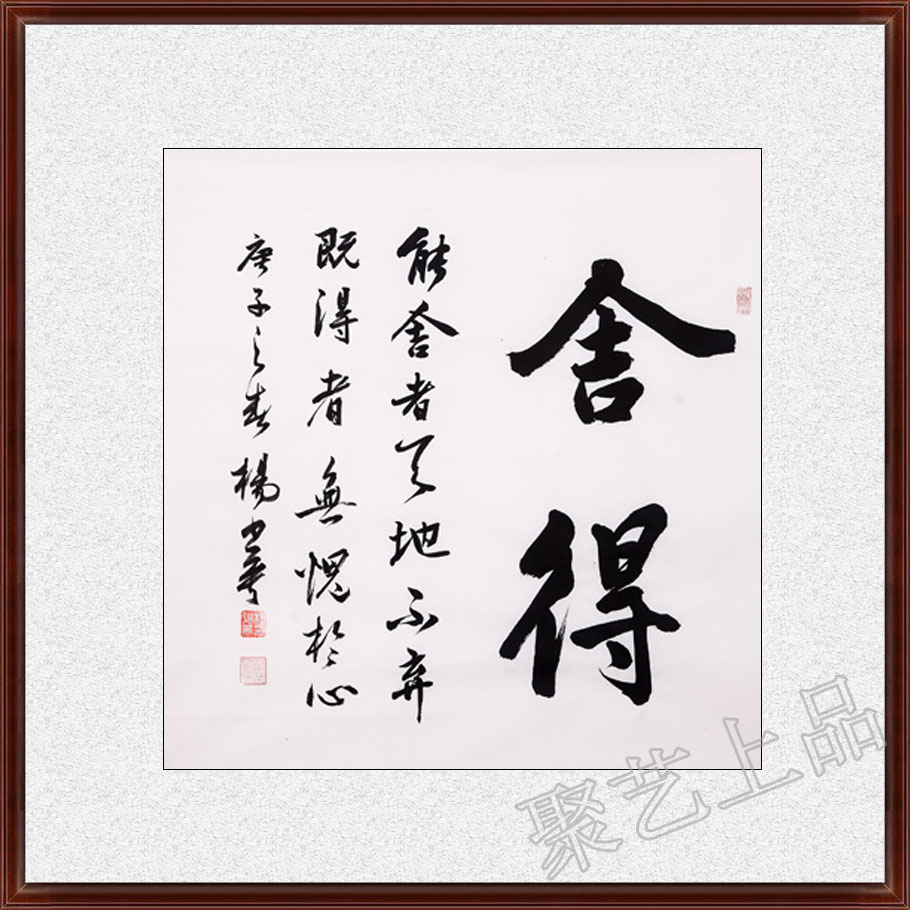 舍得
能舍者天地不弃
既得者無愧於心
庚子之春 楊
聚艺上品